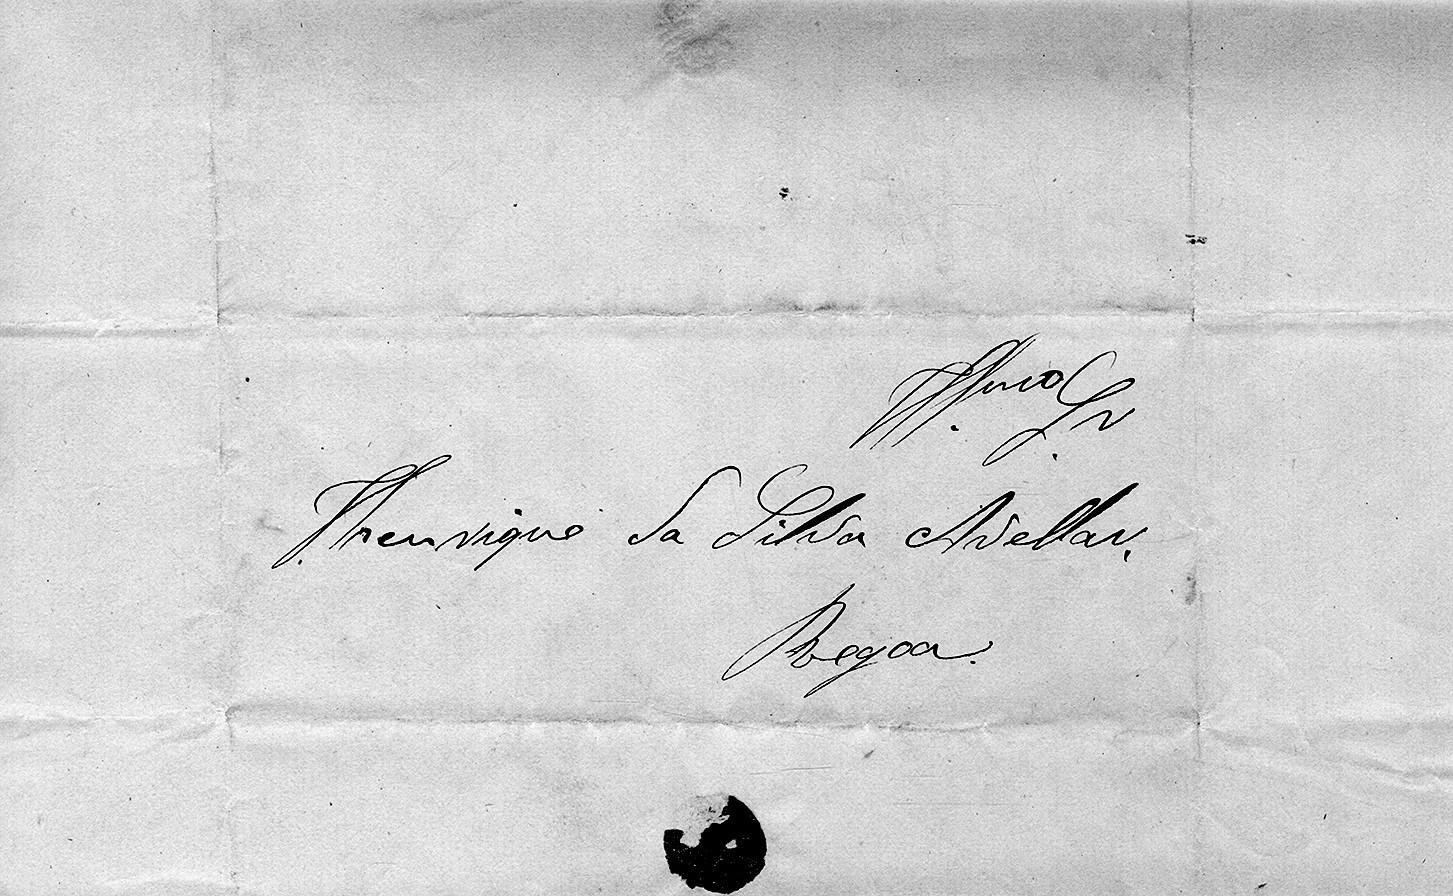 Illmo Sr.
Henrique da Silva Avellar.
Regoa.